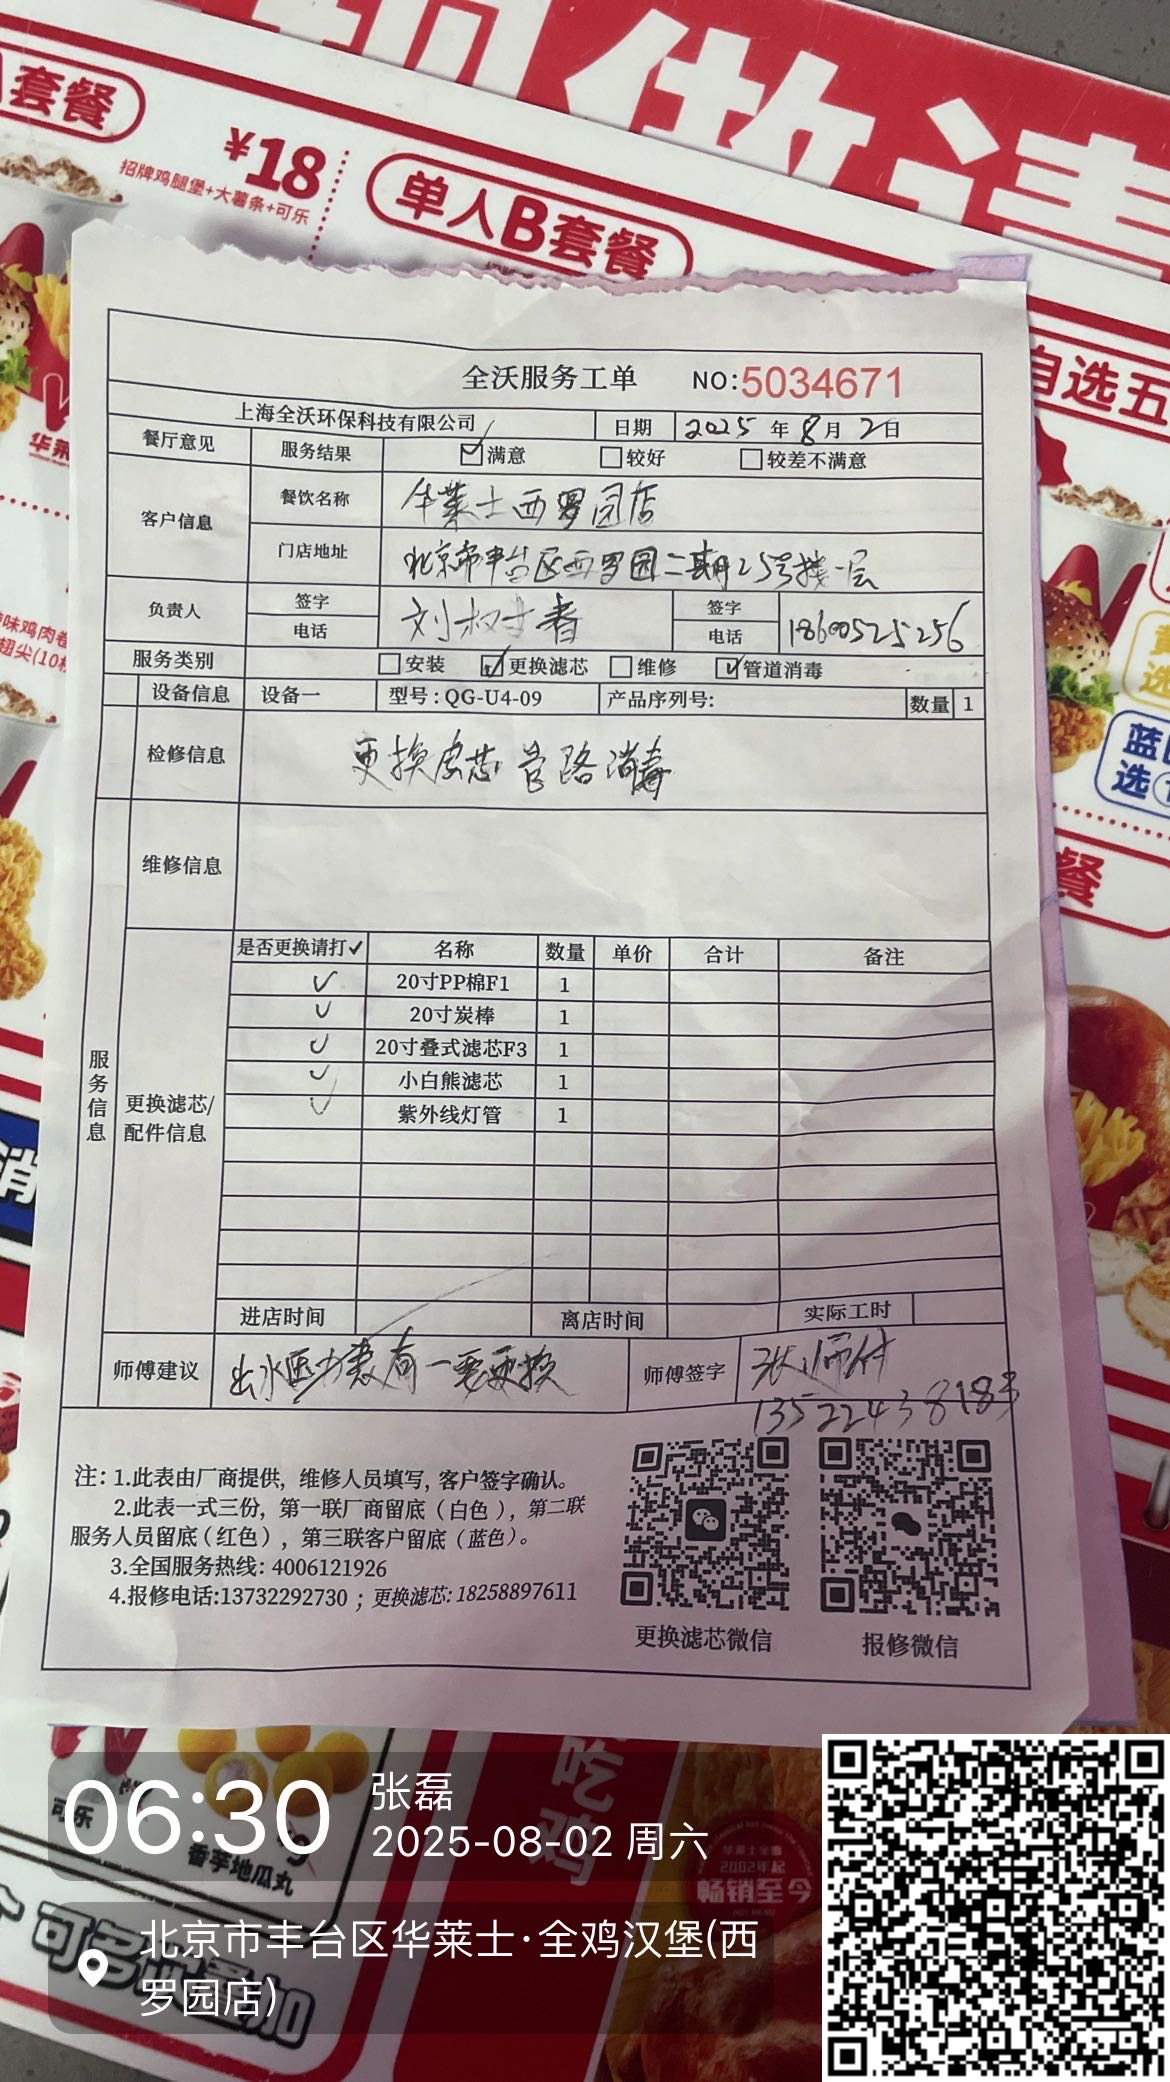 现做清
套餐
¥18
招牌鸡腿堡+大薯条+可乐
单人B套餐
自选五
全沃服务工单 NO:5034671
上海全沃环保科技有限公司 日期 2025 年 8 月 2 日
餐厅意见 服务结果 ☑满意 □较好 □较差不满意
客户信息 餐饮名称 华莱士西罗园店
门店地址 北京市丰台区西罗园二期25号楼一层
负责人 签字 签字
电话 电话 18600525256
服务类别 □安装 ☑更换滤芯 □维修 ☑管道消毒
设备信息 设备一 型号:QG-U4-09 产品序列号: 数量 1
检修信息 更换滤芯 管路消毒
维修信息
服务信息
更换滤芯/
配件信息
是否更换请打✓ 名称 数量 单价 合计 备注
✓ 20寸PP棉F1 1
✓ 20寸炭棒 1
✓ 20寸叠式滤芯F3 1
✓ 小白熊滤芯 1
✓ 紫外线灯管 1
进店时间 离店时间 实际工时
师傅建议 出水压力表有一需更换 师傅签字 张师付
13522438183
注: 1.此表由厂商提供, 维修人员填写, 客户签字确认。
2.此表一式三份, 第一联厂商留底(白色), 第二联
服务人员留底(红色), 第三联客户留底(蓝色)。
3.全国服务热线: 4006121926
4.报修电话:13732292730 ; 更换滤芯: 18258897611
更换滤芯微信 报修微信
吃鸡
可乐
香芋地瓜丸
华莱士全鸡
2002年起
畅销至今
06:30
张磊
2025-08-02 周六
北京市丰台区华莱士·全鸡汉堡(西
罗园店)